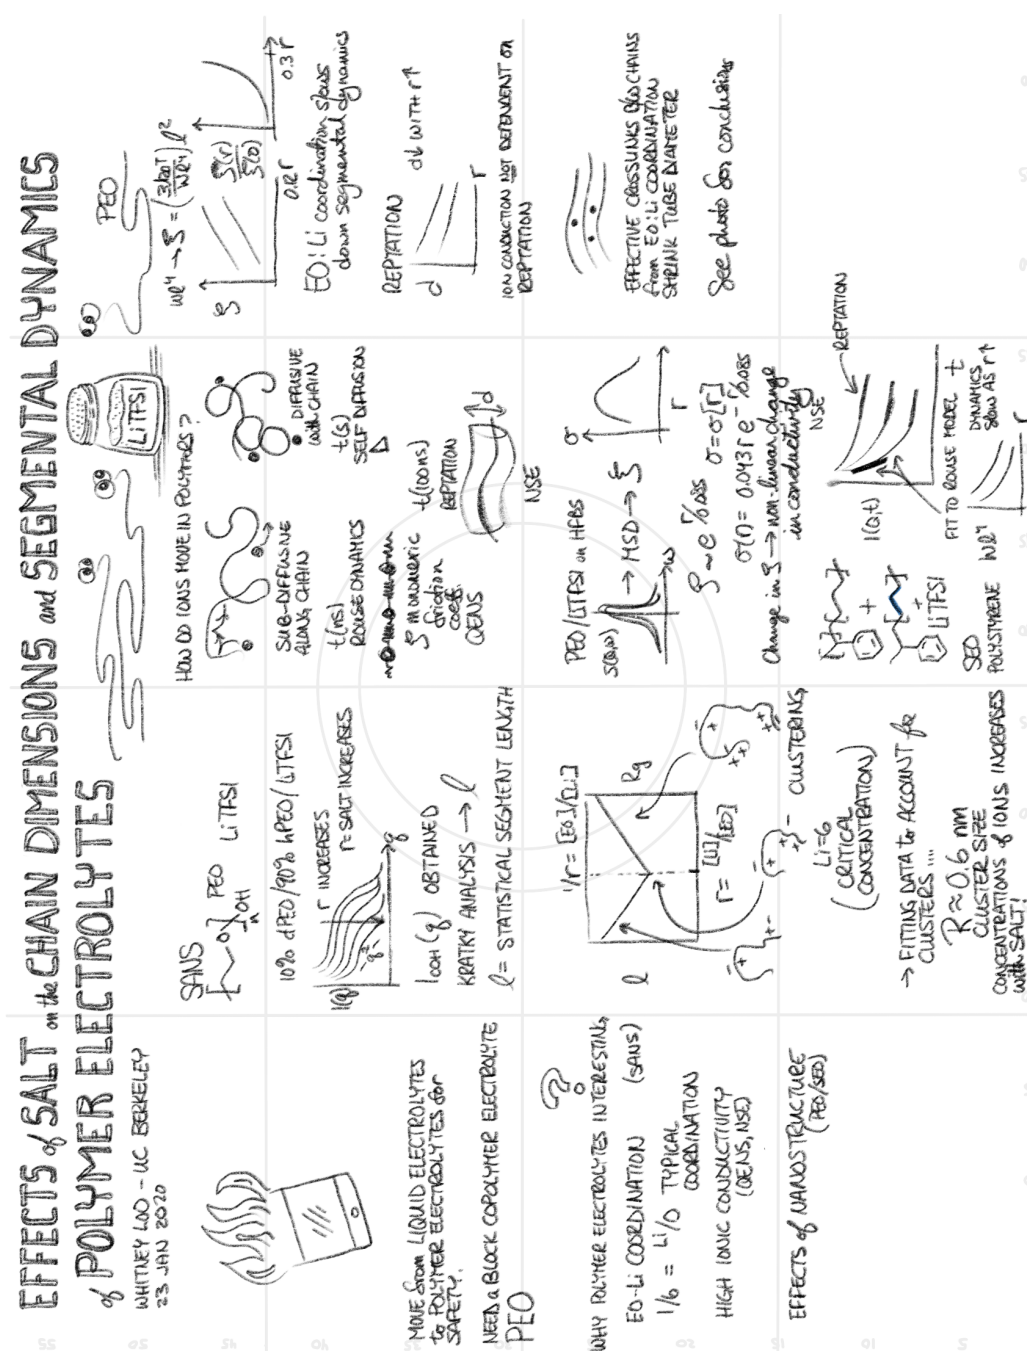 EFFECTS of SALT on the CHAIN DIMENSIONS and SEGMENTAL DYNAMICS
of POLYMER ELECTROLYTES
WHITNEY LOO - UC BERKELEY
23 JAN 2020
MOVE from LIQUID ELECTROLYTES
to POLYMER ELECTROLYTES for
SAFETY.
NEED a BLOCK COPOLYMER ELECTROLYTE
PEO
WHY POLYMER ELECTROLYTES INTERESTING
?
EO-Li COORDINATION (SANS)
1/6 = Li/O TYPICAL
COORDINATION
HIGH IONIC CONDUCTIVITY
(QENS, NSE)
EFFECTS of NANOSTRUCTURE
(PEO/SEO)
SANS
O
OH
PEO LiTFSI
10% dPEO/90% hPEO/LiTFSI
r INCREASES
r=SALT INCREASES
I(q)
q
KRATKY ANALYSIS → l
OBTAINED
l = STATISTICAL SEGMENT LENGTH
1/r = [EO]/[Li]
l
Rg
r = [Li]/[EO]
CLUSTERING
Li=6
(CRITICAL
CONCENTRATION)
→ FITTING DATA to ACCOUNT for
CLUSTERS ....
R ≈ 0.6 nm
CLUSTER SIZE
CONCENTRATIONS of IONS INCREASES
with SALT!
LiTFSI
HOW DO IONS MOVE IN POLYMERS?
SUB-DIFFUSIVE
ALONG CHAIN
DIFFUSIVE
with CHAIN
t(ns)
ROUSE DYNAMICS
t(s)
SELF DIFFUSION
ζ monomeric
friction
coeff.
QENS
t(100ns)
REPTATION
d
NSE
PEO/LiTFSI on HFBS
S(Q,ω)
ω
→ MSD → ξ
σ
r
σ=σ[r]
Change in ζ → non-linear change
in conductivity
NSE
+
LiTFSI
SEO
POLYSTYRENE
I(Q,t)
REPTATION
FIT TO ROUSE MODEL t
DYNAMICS
slow AS r↑
r
PEO
0.2 r
0.3 r
EO:Li coordination slows
down segmental dynamics
REPTATION
d
d↓ WITH r↑
r
ION CONDUCTION NOT DEPENDENT on
REPTATION
EFFECTIVE CROSSLINKS CHAINS
from EO:Li COORDINATION
SHRINK TUBE DIAMETER
See photo for conclusions